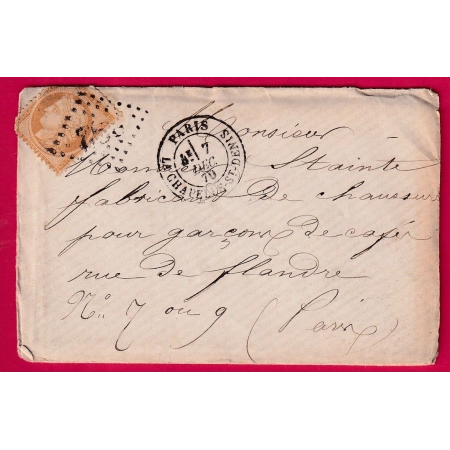 PARIS LA CHAPELLE-ST-DENIS
7
DEC
79
Monsieur
Stainte
fabricant de chaussure
pour garçon de café
rue de flandre
No 7 ou 9 (Paris)